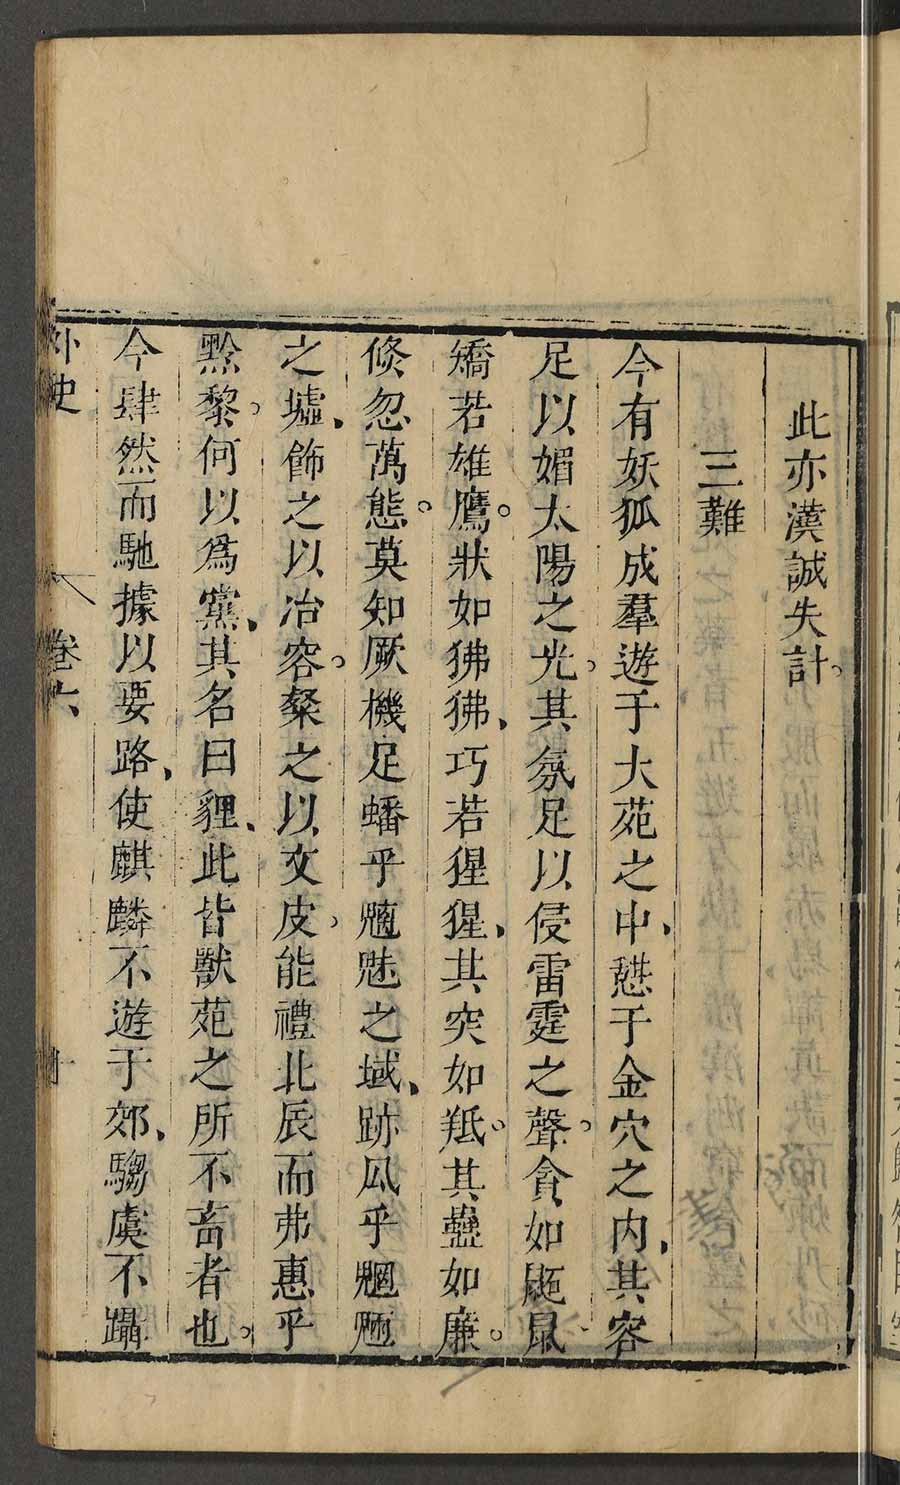 此亦漢誠失計。
三難
今有妖狐成羣遊于大苑之中、憇于金穴之内、其容
足以媚太陽之光。其氛足以侵雷霆之聲。貪如鼫鼠
矯若雄鷹。狀如狒狒、巧若猩猩、其突如羝。其蠱如廉。
倏忽萬態。莫知厥機足蟠乎魑魅之域、跡瓜乎魍魎
之墟、飾之以冶容。粲之以文皮、能禮北辰而弗惠乎
黔黎。何以爲黨、其名曰貍、此皆獸苑之所不畜者也。
今肆然而馳據以要路、使麒麟不遊于郊、騶虞不躡
外史 卷六 十